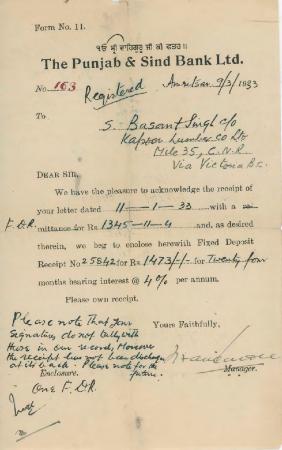 Form No. 11.
ੴ ਸ੍ਰੀ ਵਾਹਿਗੁਰੂ ਜੀ ਕੀ ਫਤਹ ॥
The Punjab & Sind Bank Ltd.
No. 163 Registered Amritsar 9/3/1933
To
S. Basant Singh c/o
Kapoor Lumber Co Ltd
Mile 35, C.N.R
Via Victoria B.C.
DEAR SIR,
We have the pleasure to acknowledge the receipt of
your letter dated 11-1-33 with a re-
F.D.R. mittance for Rs 1345-11-9 and, as desired
therein, we beg to enclose herewith Fixed Deposit
Receipt No 25842 for Rs 1473/-/- for Twenty four
months bearing interest @ 4% per annum.
Please own receipt.
Please note that your
Yours Faithfully,
Signatures do not tally with
those in our record, Moreover
the receipt has not been discharged
at its back. Please note for the
future.
Manager.
Enclosure.
One F.D.R.